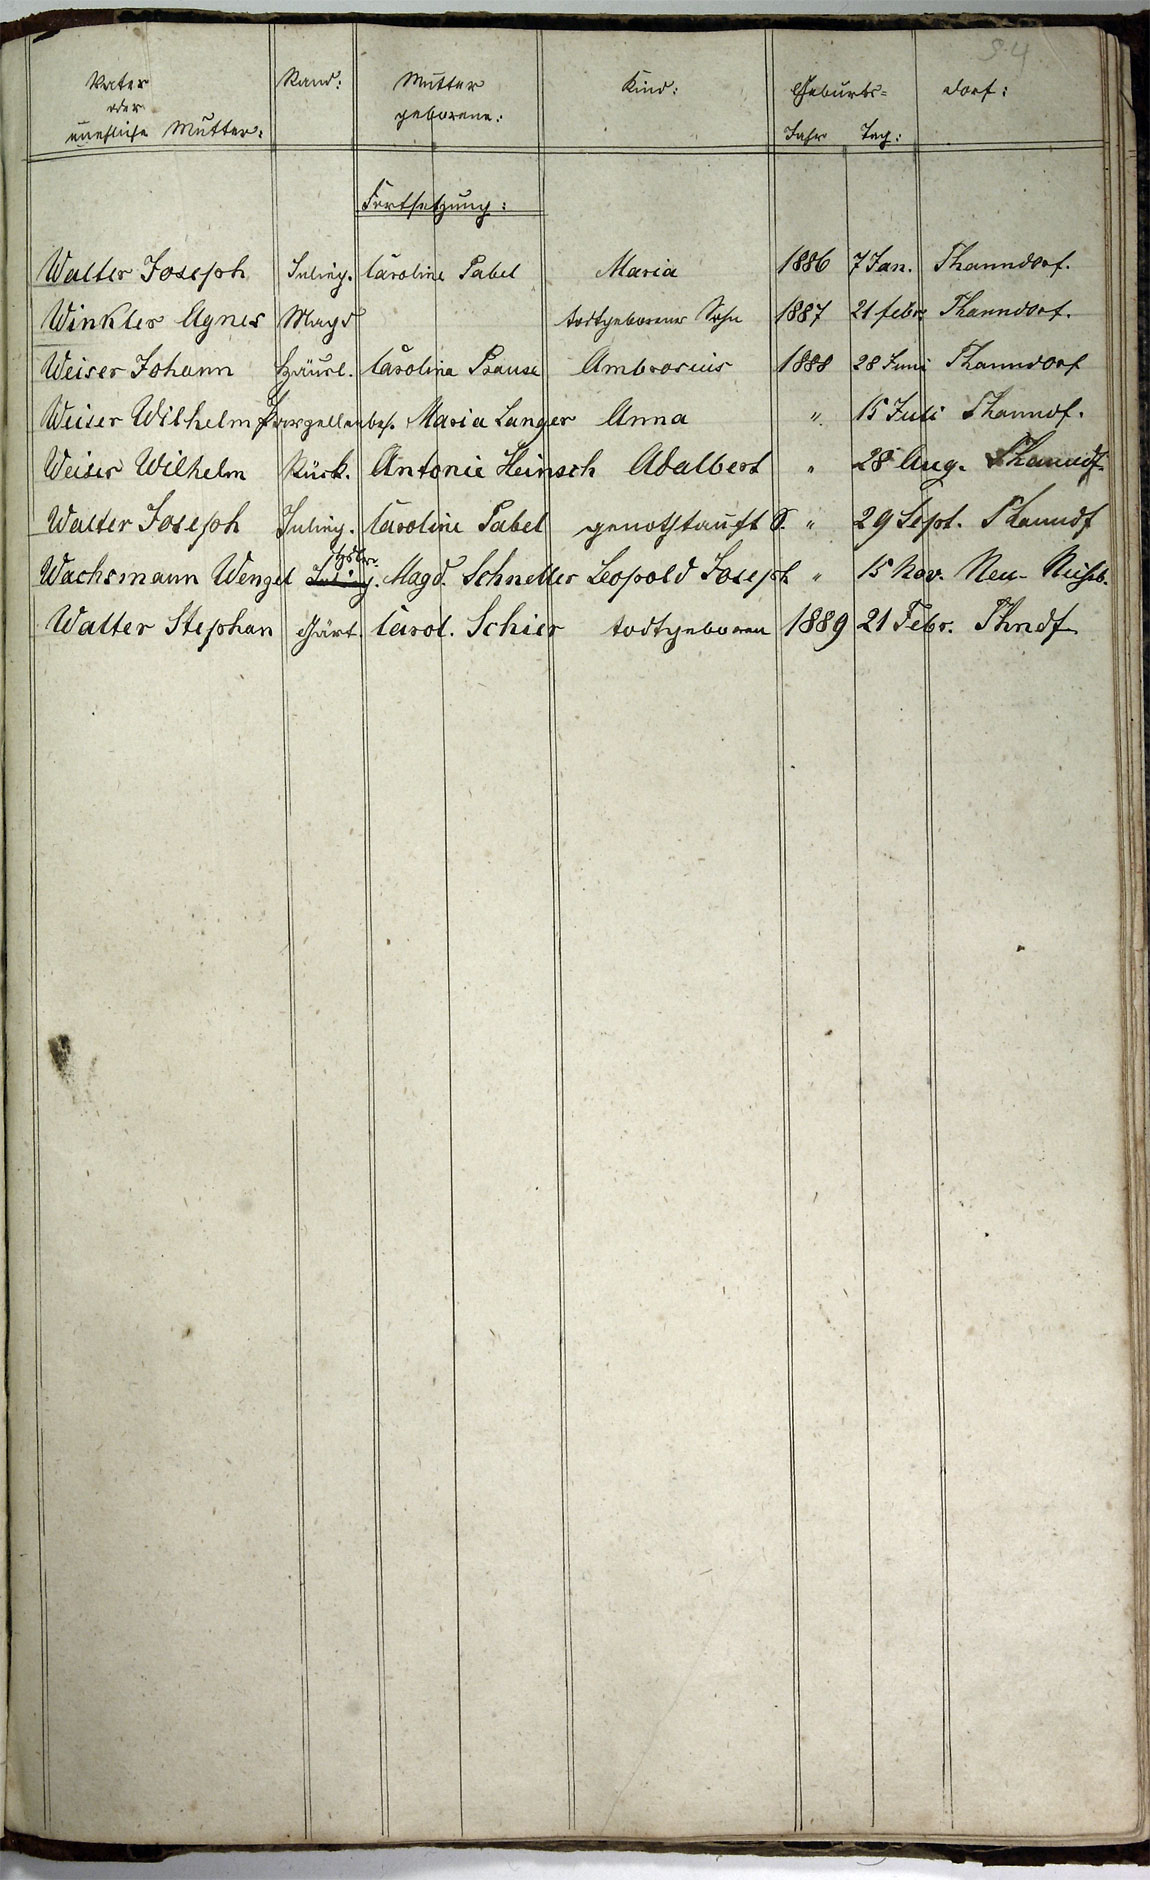 S. 4
Vater Stand: Mutter Kind: Geburts= Dorf:
oder geborene:
uneheliche Mutter: Jahr Tag:
Fortsetzung:
Walter Joseph Inlieg. Caroline Pabel Maria 1886 7 Jan. Thanndorf.
Winkler Agnes Magd todtgeborener Sohn 1887 21 febr. Thanndorf.
Weiser Johann Häusl. Carolina Prause Ambrosius 1888 28 Juni Thanndorf
Weiser Wilhelm Parzellenbes. Maria Langer Anna " 15 Juli Thanndf.
Weiser Wilhelm Rück. Antonie Heinsch Adalbert " 28 Aug. Thanndf.
Walter Joseph Inlieg. Caroline Pabel genothtauft S. " 29 Sept. Thanndf
Wachsmann Wenzel Magd. Schneller Leopold Joseph " 15 Nov. Neu-
Walter Stephan Gärt. Carol. Schier todtgeboren 1889 21 Febr. Thndf